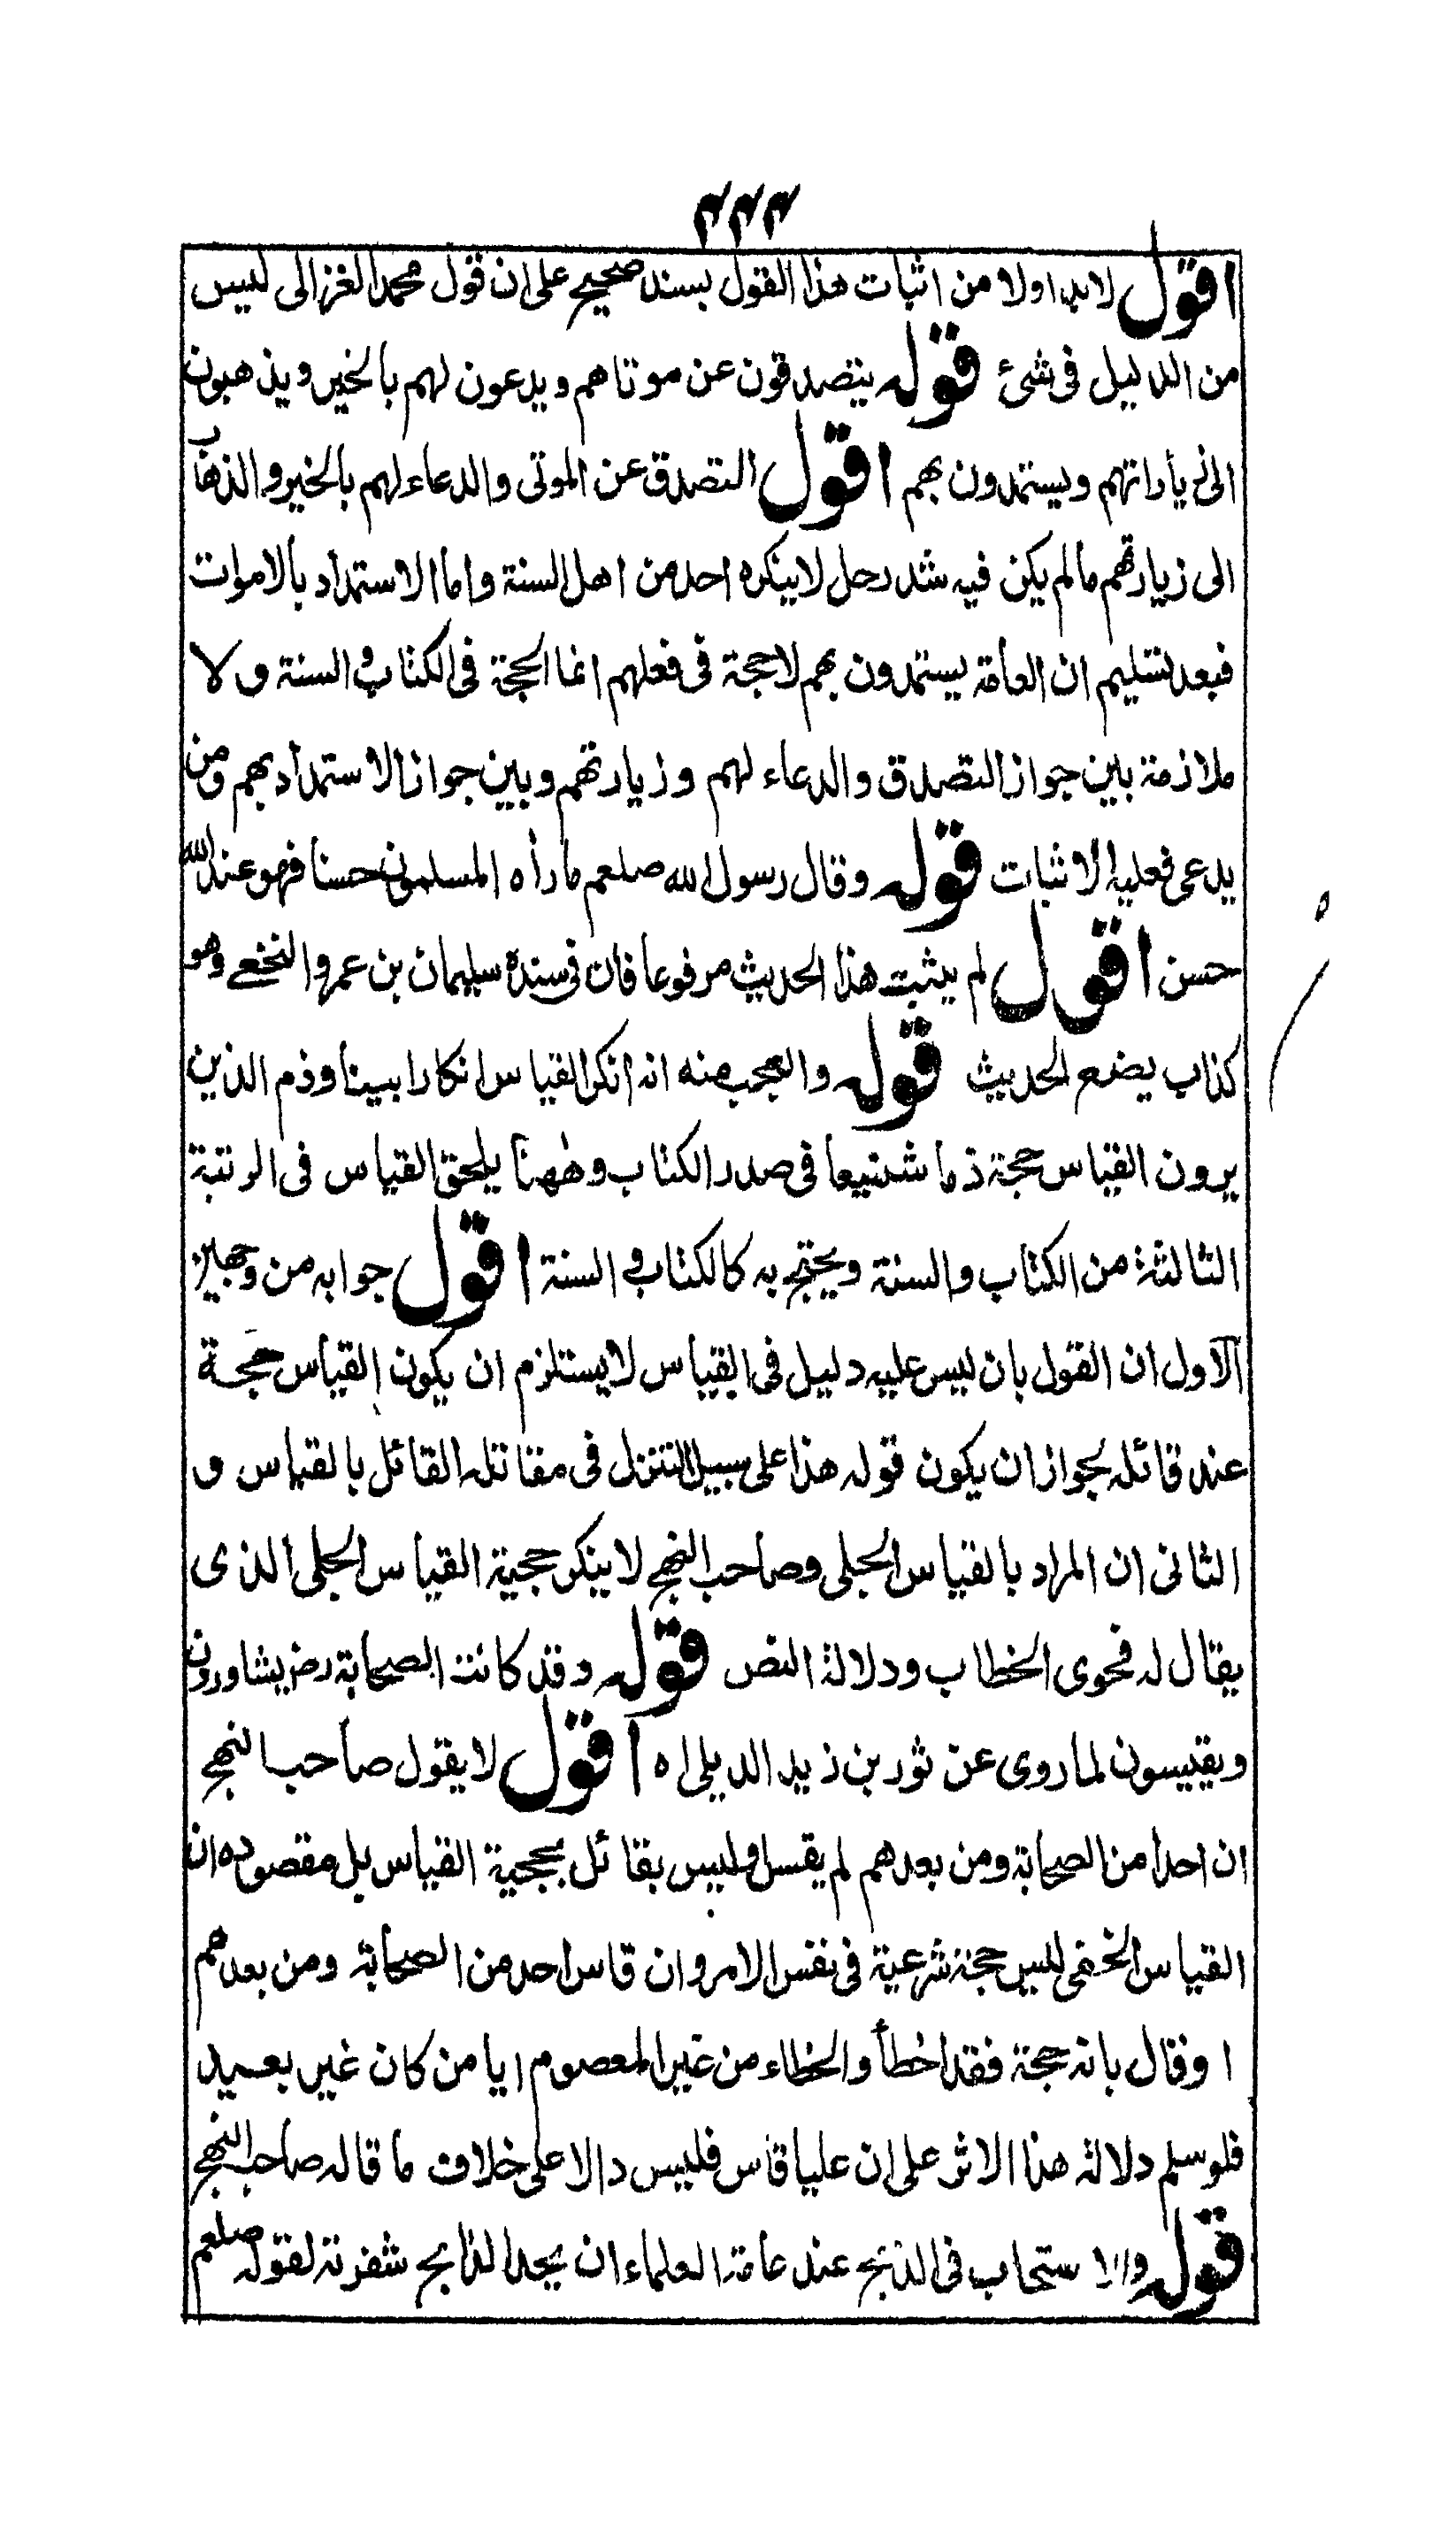 ۴۴۴
اقول لابد اولا من اثبات هذا القول بسند صحيح على ان قول محمد الغزالى ليس
من الدليل فى شئ قوله يتصدقون عن موتاهم ويدعون لهم بالخير ويذهبون
الى زياراتهم ويستمدون بهم اقول التصدق عن الموتى والدعاء لهم بالخير والذهاب
الى زيارتهم مالم يكن فيه شد رحل لاينكره احد من اهل السنة واما الاستمداد بالاموات
فبعد تسليم ان العامة يستمدون بهم لاحجة فى فعلهم انما الحجة فى الكتاب والسنة ولا
ملازمة بين جواز التصدق والدعاء لهم وزيارتهم وبين جواز الاستمداد بهم ومن
يدعى فعليه الاثبات قوله وقال رسول الله صلعم ما رأه المسلمون حسنا فهو عند الله
حسن اقول لم يثبت هذا الحديث مرفوعا فان فى سنده سليمان بن عمرو النخعے وهو
كذاب يضع الحديث قوله والعجب منه انه انكر القياس انكارا بينا وذم الذين
يرون القياس حجة ذما شنيعا فى صدر الكتاب وههنا يلحق القياس فى الرتبة
الثالثة من الكتاب والسنة ويحتج به كالكتاب والسنة اقول جوابه من وجهين
الاول ان القول بان ليس عليه دليل فى القياس لايستلزم ان يكون القياس حجة
عند قائله لجواز ان يكون قوله هذا على سبيل التنزل فى مقاتلة القائل بالقياس و
الثانى ان المراد بالقياس الجلى وصاحب النهج لا ينكر حجية القياس الجلى الذى
يقال له فحوى الخطاب ودلالة النص قوله وقد كانت الصحابة رض يشاورون
ويقيسون لما روى عن ثور بن زيد الديلى اه اقول لا يقول صاحب النهج
ان احدا من الصحابة ومن بعدهم لم يقس وليس بقائل بحجية القياس بل مقصوده ان
القياس الخفى ليس حجة شرعية فى نفس الامر وان قاس احد من الصحابة ومن بعدهم
او قال بانه حجة فقد اخطأ والخطاء من غير المعصوم ايا من كان غير بعيد
فلو سلم دلالة هذا الاثر على ان عليا قاس فليس دالا على خلاف ما قاله صاحب النهج
قوله والاستحاب فى الذبح عند عامة العلماء ان يحد الذابح شفرته لقوله صلعم